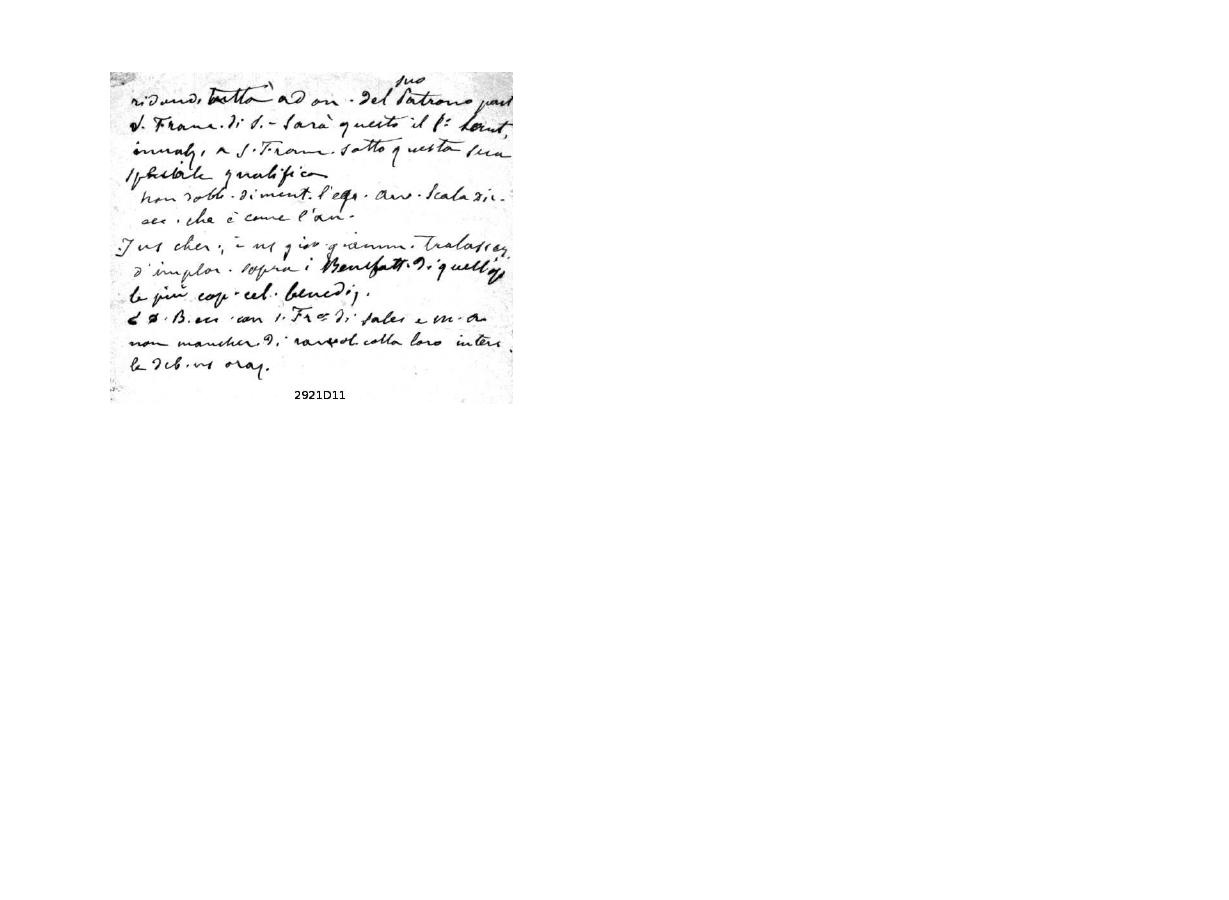 suo
ridond. tutta ad on. del Patrono part
S. Franc. di S. - Sarà questo il 1º
innalz. a S. Franc. sotto questa sua
speciale qualifica
non dobb. diment. l'egr. avv. Scala dir.
che è come l'an.
I ns cher. i ns giov. giamm. tralasser.
d'implor. sopra i Benefatt. di quell' op
le più cop. cel. benediz.
con S. Frco di Sales e
non mancher. di colla loro inters.
le deb. ns oraz.
2921D11